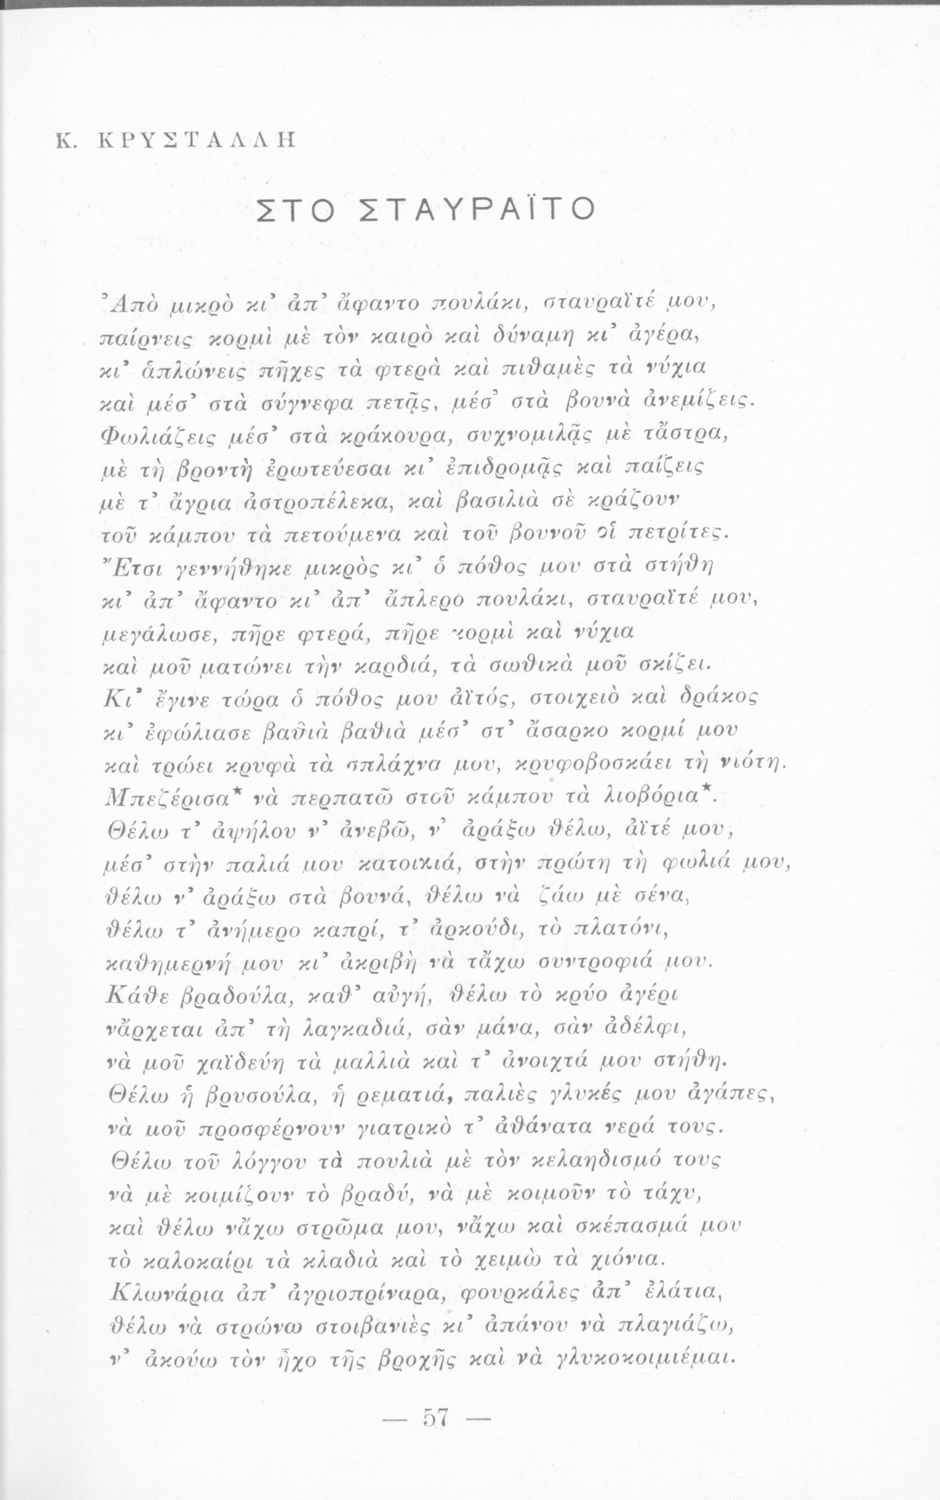 Κ. ΚΡΥΣΤΑΛΛΗ
ΣΤΟ ΣΤΑΥΡΑΪΤΟ
Ἀπὸ μικρὸ κι᾿ ἀπ᾿ ἄφαντο πουλάκι, σταυραϊτέ μου,
παίρνεις κορμὶ μὲ τὸν καιρὸ καὶ δύναμη κι᾿ ἀγέρα,
κι᾿ ἁπλώνεις πῆχες τὰ φτερὰ καὶ πιθαμὲς τὰ νύχια
καὶ μέσ᾿ στὰ σύγνεφα πετᾷς, μέσ᾿ στὰ βουνὰ ἀνεμίζεις.
Φωλιάζεις μέσ᾿ στὰ κράκουρα, συχνομιλᾷς μὲ τἄστρα,
μὲ τὴ βροντὴ ἐρωτεύεσαι κι᾿ ἐπιδρομᾷς καὶ παίζεις
μὲ τ᾿ ἄγρια ἀστροπέλεκα, καὶ βασιλιὰ σὲ κράζουν
τοῦ κάμπου τὰ πετούμενα καὶ τοῦ βουνοῦ οἱ πετρίτες.
Ἔτσι γεννήθηκε μικρὸς κι᾿ ὁ πόθος μου στὰ στήθη
κι᾿ ἀπ᾿ ἄφαντο κι᾿ ἀπ᾿ ἄπλερο πουλάκι, σταυραϊτέ μου,
μεγάλωσε, πῆρε φτερά, πῆρε κορμὶ καὶ νύχια
καὶ μοῦ ματώνει τὴν καρδιά, τὰ σωθικὰ μοῦ σκίζει.
Κι᾿ ἔγινε τώρα ὁ πόθος μου ἀϊτός, στοιχειὸ καὶ δράκος
κι᾿ ἐφώλιασε βαθιὰ βαθιὰ μέσ᾿ στ᾿ ἄσαρκο κορμί μου
καὶ τρώει κρυφὰ τὰ σπλάχνα μου, κρυφοβοσκάει τὴ νιότη.
Μπεζέρισα* νὰ περπατῶ στοῦ κάμπου τὰ λιοβόρια*.
Θέλω τ᾿ ἀψήλου ν᾿ ἀνεβῶ, ν᾿ ἀράξω θέλω, ἀϊτέ μου,
μέσ᾿ στὴν παλιά μου κατοικιά, στὴν πρώτη τὴ φωλιά μου,
θέλω ν᾿ ἀράξω στὰ βουνά, θέλω νὰ ζάω μὲ σένα,
θέλω τ᾿ ἀνήμερο καπρί, τ᾿ ἀρκούδι, τὸ πλατόνι,
καθημερνή μου κι᾿ ἀκριβὴ νὰ τἄχω συντροφιά μου.
Κάθε βραδούλα, καθ᾿ αὐγή, θέλω τὸ κρύο ἀγέρι
νἄρχεται ἀπ᾿ τὴ λαγκαδιά, σὰν μάνα, σὰν ἀδέλφι,
νὰ μοῦ χαϊδεύη τὰ μαλλιὰ καὶ τ᾿ ἀνοιχτά μου στήθη.
Θέλω ἡ βρυσούλα, ἡ ρεματιά, παλιὲς γλυκές μου ἀγάπες,
νὰ μοῦ προσφέρνουν γιατρικὸ τ᾿ ἀθάνατα νερά τους.
Θέλω τοῦ λόγγου τὰ πουλιὰ μὲ τὸν κελαηδισμό τους
νὰ μὲ κοιμίζουν τὸ βραδύ, νὰ μὲ κοιμοῦν τὸ τάχυ,
καὶ θέλω νἄχω στρῶμα μου, νἄχω καὶ σκέπασμά μου
τὸ καλοκαίρι τὰ κλαδιὰ καὶ τὸ χειμὼ τὰ χιόνια.
Κλωνάρια ἀπ᾿ ἀγριοπρίναρα, φουρκάλες ἀπ᾿ ἐλάτια,
θέλω νὰ στρώνω στοιβανιὲς κι᾿ ἀπάνου νὰ πλαγιάζω,
ν᾿ ἀκούω τὸν ἦχο τῆς βροχῆς καὶ νὰ γλυκοκοιμιέμαι.
— 57 —